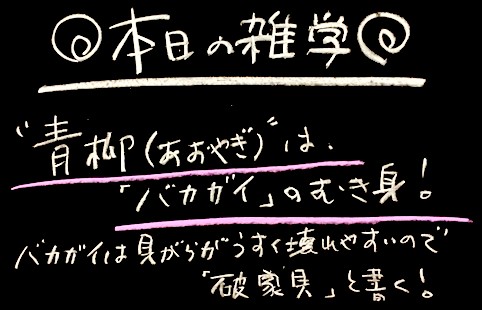 本日の雑学
"青柳(あおやぎ)"は、
「バカガイ」のむき身!
バカガイは貝がらがうすく壊れやすいので
「破家貝」と書く!